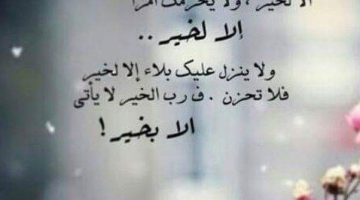 الا لخير ، ولا يحرمك امرا
إلا لخير ..
ولا ينزل عليك بلاء إلا لخير
فلا تحزن . ف رب الخير لا يأتى
الا بخير !